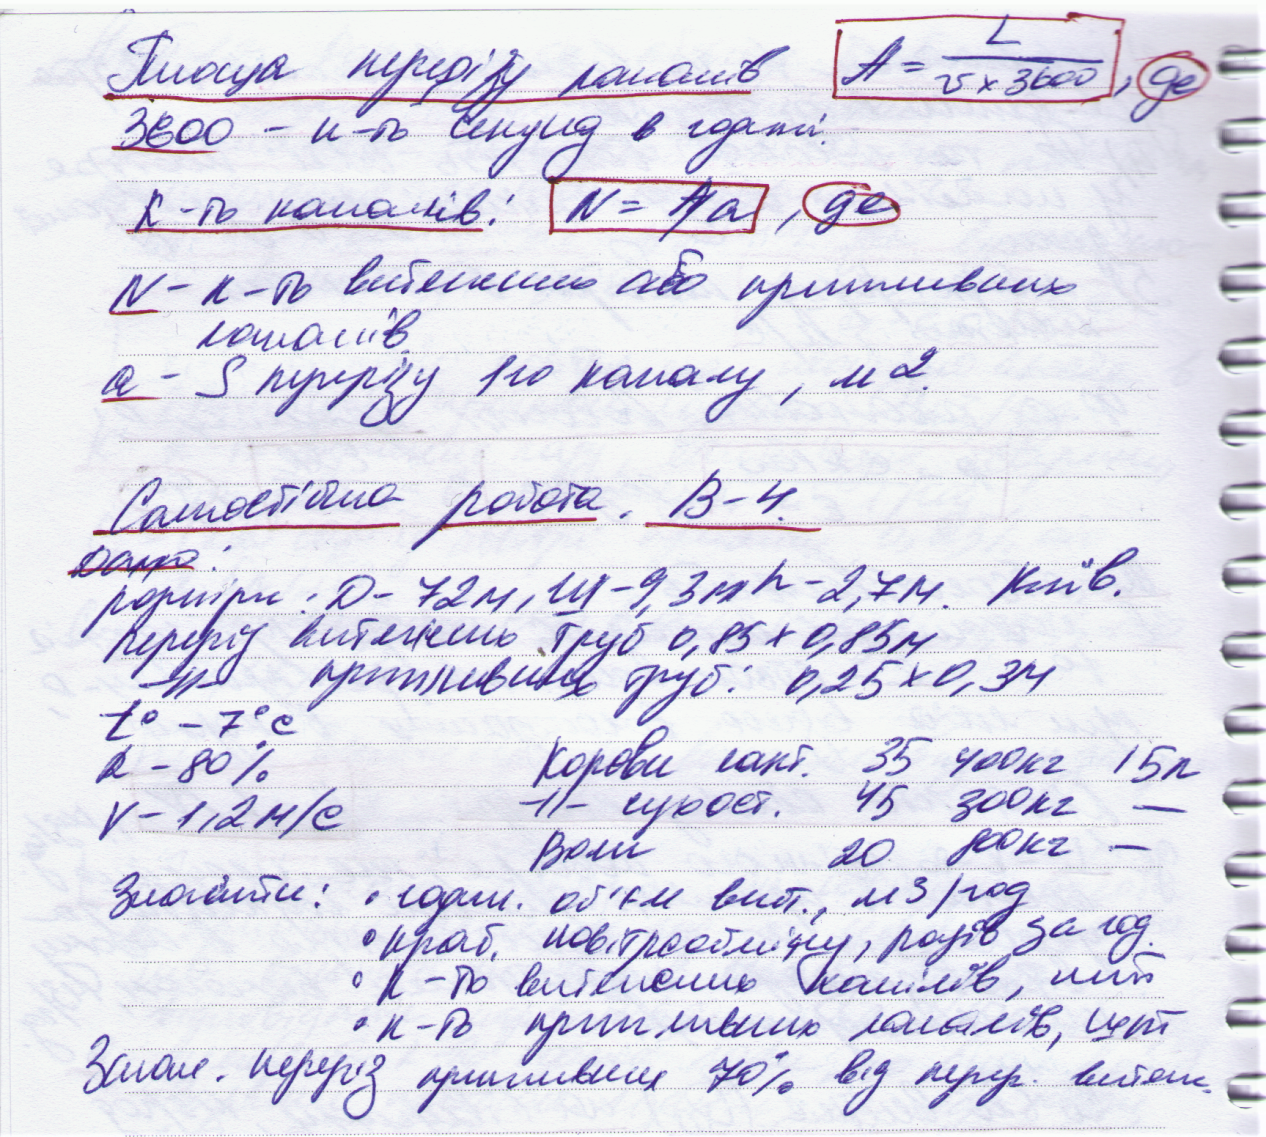 Площа перерізу каналів A = L / v x 3600, де
3600 - к-ть секунд в годині.
К-ть каналів: N = A/a, де
N - к-ть витяжних або припливних
каналів
a - S перерізу 1го каналу, м2.
Самостійна робота. В-4.
Дано:
розміри: Д - 72м, Ш - 9,3м h - 2,7м. Київ.
переріз витяжних труб 0,85 x 0,85м
-//- припливних труб: 0,25 x 0,3м
t° - 7°C
R - 80%
V - 1,2м/с
Корови лакт. 35 400кг 15л
-//- сухост. 45 300кг —
Воли 20 800кг —
Знайти: • годин. об'єм вент., м3/год
• крат. повітрообміну, разів за год.
• к-ть витяжних каналів, шт
• к-ть припливних каналів, шт
Заг. переріз припливних 70% від перер. витяж.